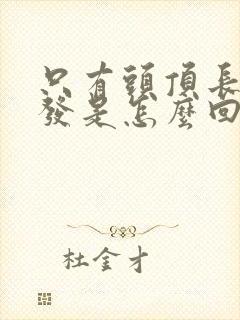 只有頭頂長
發是怎麼回
杜金才